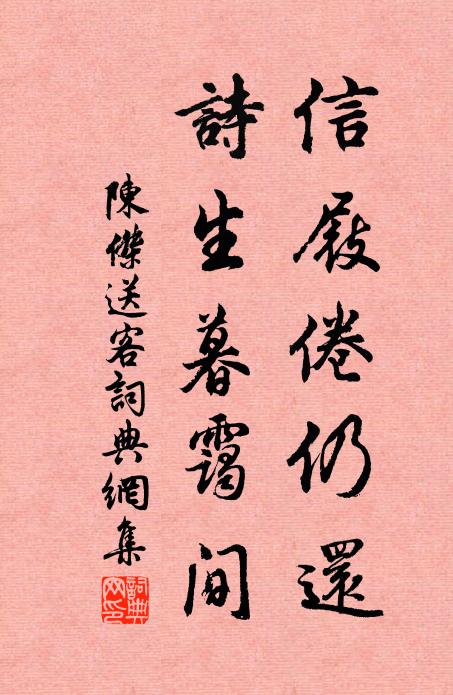 信屐倦仍還
詩生暮靄间
陳傑送客詞典網集
詞典網印